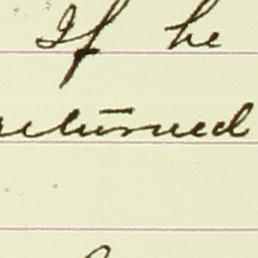 If he
returned